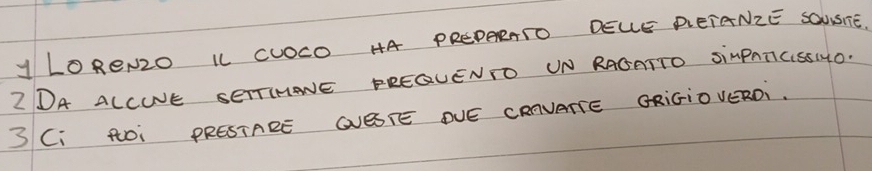 1) LORENZO IL CUOCO HA PREPARATO DELLE PIETANZE SQUISITE.
2 DA ALCUNE SETTIMANE FREQUENTO UN RAGATTO SIMPATICISSIMO.
3 Ci PUOi PRESTARE QUESTE DUE CRAVATTE GRIGIOVERDI.